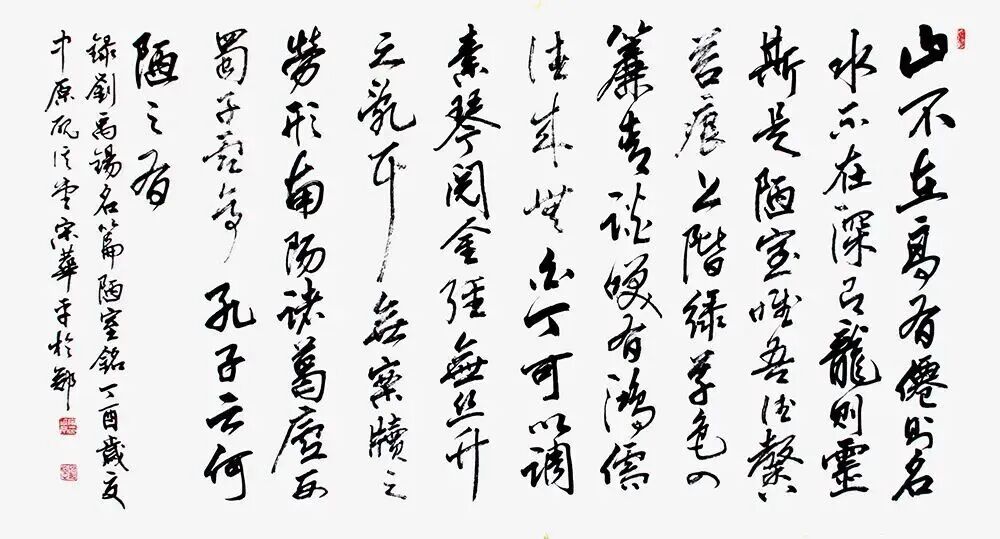 山不在高有僊則名
水不在深有龍則靈
斯是陋室唯吾德馨
苔痕上階綠草色入
簾青談咲有鴻儒
往來無白丁可以調
素琴閱金經無絲竹
之亂耳無案牘之
勞形南陽諸葛廬西
蜀子雲亭孔子云何
陋之有
錄劉禹錫名篇陋室銘丁酉歲夏
中原堂宋華平於鄭